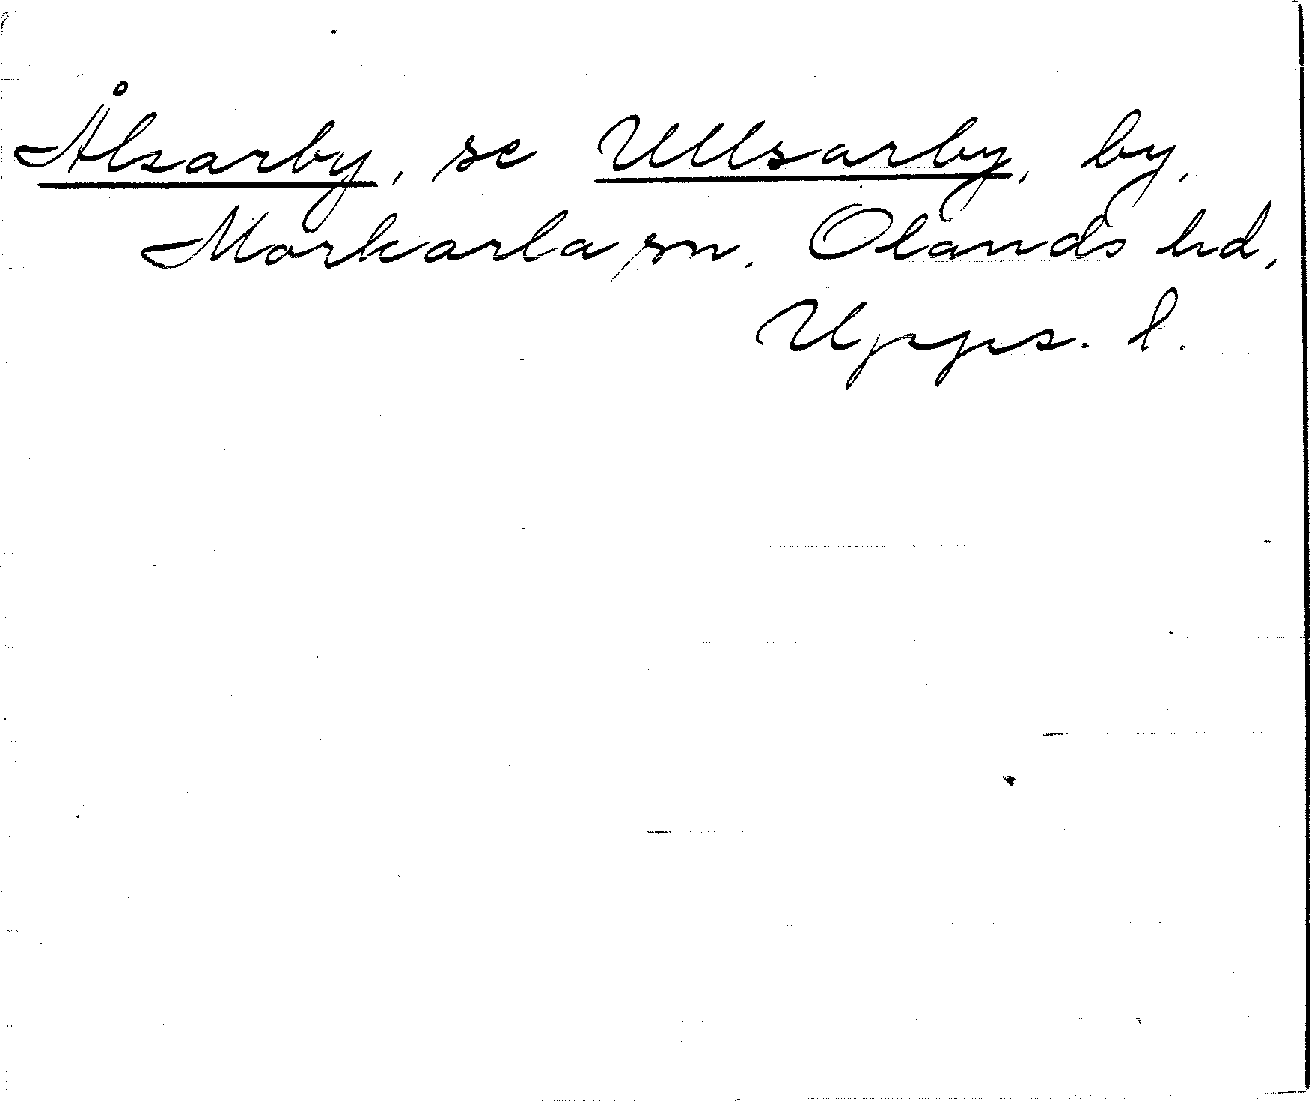 Ålsarby, se Ullsarby, by,
Morkarla sn. Olands hd,
Upps. l.